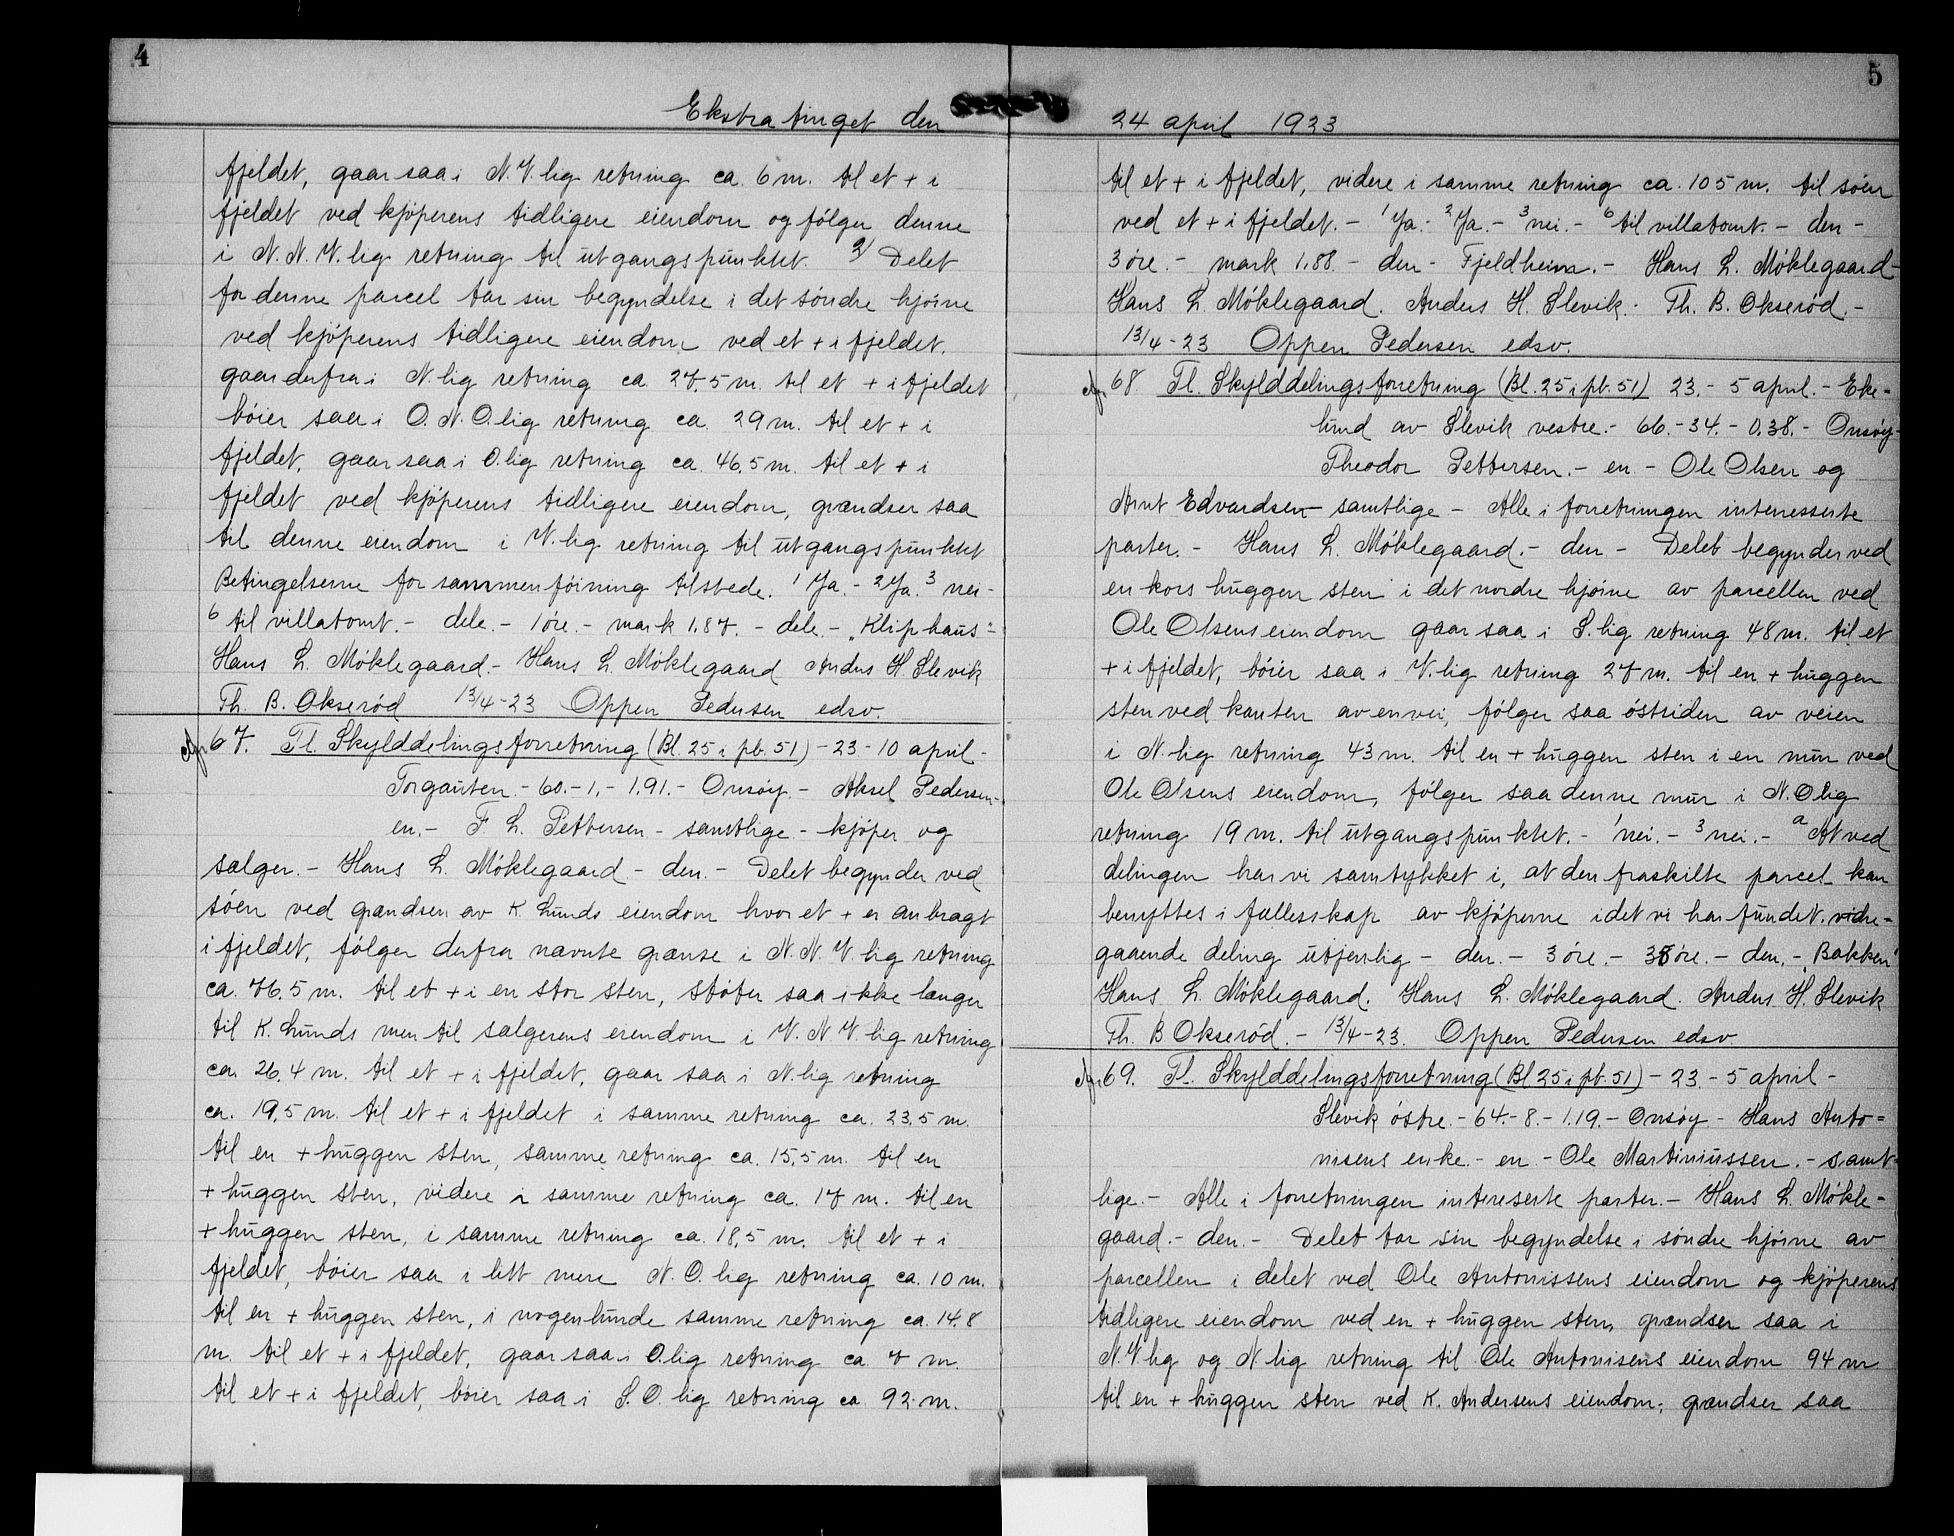 4
Ekstratinget den
fjeldet, gaar saa i N.V.lig retning ca. 6 m. til et + i
fjeldet ved kjøperens tidligere eiendom og følger denne
i N.N.V.lig retning til utgangspunktet. 2/ Delet
for denne parcel tar sin begyndelse i det søndre hjørne
ved kjøperens tidligere eiendom ved et + i fjeldet,
gaar derfra i N.lig retning ca. 27,5 m. til et + i fjeldet
bøier saa i O.N.O.lig retning ca. 29 m. til et + i
fjeldet, gaar saa i O.lig retning ca. 46,5 m. til et + i
fjeldet ved kjøperens tidligere eiendom, grændser saa
til denne eiendom i V.lig retning til utgangspunktet
Betingelserne for sammenføining tilstede. 1 Ja. - 2 Ja. 3 nei -
6 til villatomt. - dele. - 1 øre. - mark 1.87. - dele. - "Kliphaus" -
Hans L. Møklegaard. - Hans L. Møklegaard Anders H. Slevik
Th. B. Okserød 13/4-23 Oppen Pedersen edsv.
67. Tl. Skylddelingsforretning (Bl. 25 i pb. 51) - 23 - 10 april -
Torgauten. - 60. - 1. - 1.91. - Onsøy. - Aksel Pedersen -
en. - F. L. Pettersen - samtlige - kjøper og
sælger. - Hans L. Møklegaard - den. - Delet begynder ved
søen ved grændsen av K. Lunds eiendom hvor et + er anbragt
i fjeldet, følger derfra nævnte grænse i N.N.V.lig retning
ca. 76,5 m. til et + i en stor sten, støter saa ikke længer
til K. Lunds men til sælgerens eiendom i V.N.V.lig retning
ca. 26,4 m. til et + i fjeldet, gaar saa i N.lig retning
ca. 19,5 m. til et + i fjeldet i samme retning ca. 23,5 m.
til en + huggen sten, samme retning ca. 15,5 m. til en
+ huggen sten, videre i samme retning ca. 17 m. til en
+ huggen sten, i samme retning ca. 18,5 m. til et + i
fjeldet, bøier saa i litt mere N.O.lig retning ca. 10 m.
til en + huggen sten, i nogenlunde samme retning ca. 14.8
m. til et + i fjeldet, gaar saa i O.lig retning ca 7 m.
til et + i fjeldet, bøier saa i S.O.lig retning ca. 92 m.
5
24 april 1923
til et + i fjeldet, videre i samme retning ca. 105 m. til søen
ved et + i fjeldet. - 1 Ja. - 2 Ja. - 3 nei. - 6 til villatomt. - den -
3 øre. - mark 1.88. - den - Fjeldheim. - Hans L. Møklegaard -
Hans L. Møklegaard. Anders H. Slevik. Th. B. Okserød. -
13/4-23 Oppen Pedersen edsv.
68. Tl. Skylddelingsforretning (Bl. 25 i pb. 51) 23. - 5 april. - Eke-
lund av Slevik vestre. - 66. - 34. - 0.38. - Onsøy -
Theodor Pettersen. - en - Ole Olsen og
Arnt Edvardsen - samtlige - Alle i forretningen interesserte
parter. - Hans L. Møklegaard. - den - Delet begynder ved
en kors huggen sten i det nordre hjørne av parcellen ved
Ole Olsens eiendom gaar saa i S.lig retning 48 m. til et
+ i fjeldet, bøier saa i V.lig retning 27 m. til en + huggen
sten ved kanten av en vei, følger saa østsiden av veien
i N.lig retning 43 m. til en + huggen sten i en mur ved
Ole Olsens eiendom, følger saa denne mur i N.O.lig
retning 19 m. til utgangspunktet. - 1 nei. - 3 nei. - a At ved
delingen har vi samtykket i, at den fraskilte parcel kan
benyttes i fællesskap av kjøperne idet vi har fundet vidre-
gaaende deling utjenlig - den. - 3 øre. - 35 øre. - den. - "Bakken"
Hans L. Møklegaard. Hans L. Møklegaard. Anders H. Slevik
Th. B Okserød. - 13/4-23. Oppen Pedersen edsv.
69. Tl. Skylddelingsforretning (Bl 25 i pb. 51) - 23. - 5 april -
Slevik østre. - 64. - 8 - 1.19. - Onsøy - Hans Anto=
nisens enke. - en. - Ole Martiniussen. - samt=
lige. - Alle i forretningen intereserte parter. - Hans L. Møkle-
gaard. - den. - Delet tar sin begyndelse i søndre hjørne av
parcellen i delet ved Ole Antonissens eiendom og kjøperens
tidligere eiendom ved en + huggen sten, grændser saa i
N.V.lig og N.lig retning til Ole Antonisens eiendom 94 m.
til en + huggen sten ved K. Andersens eiendom, grændser saa